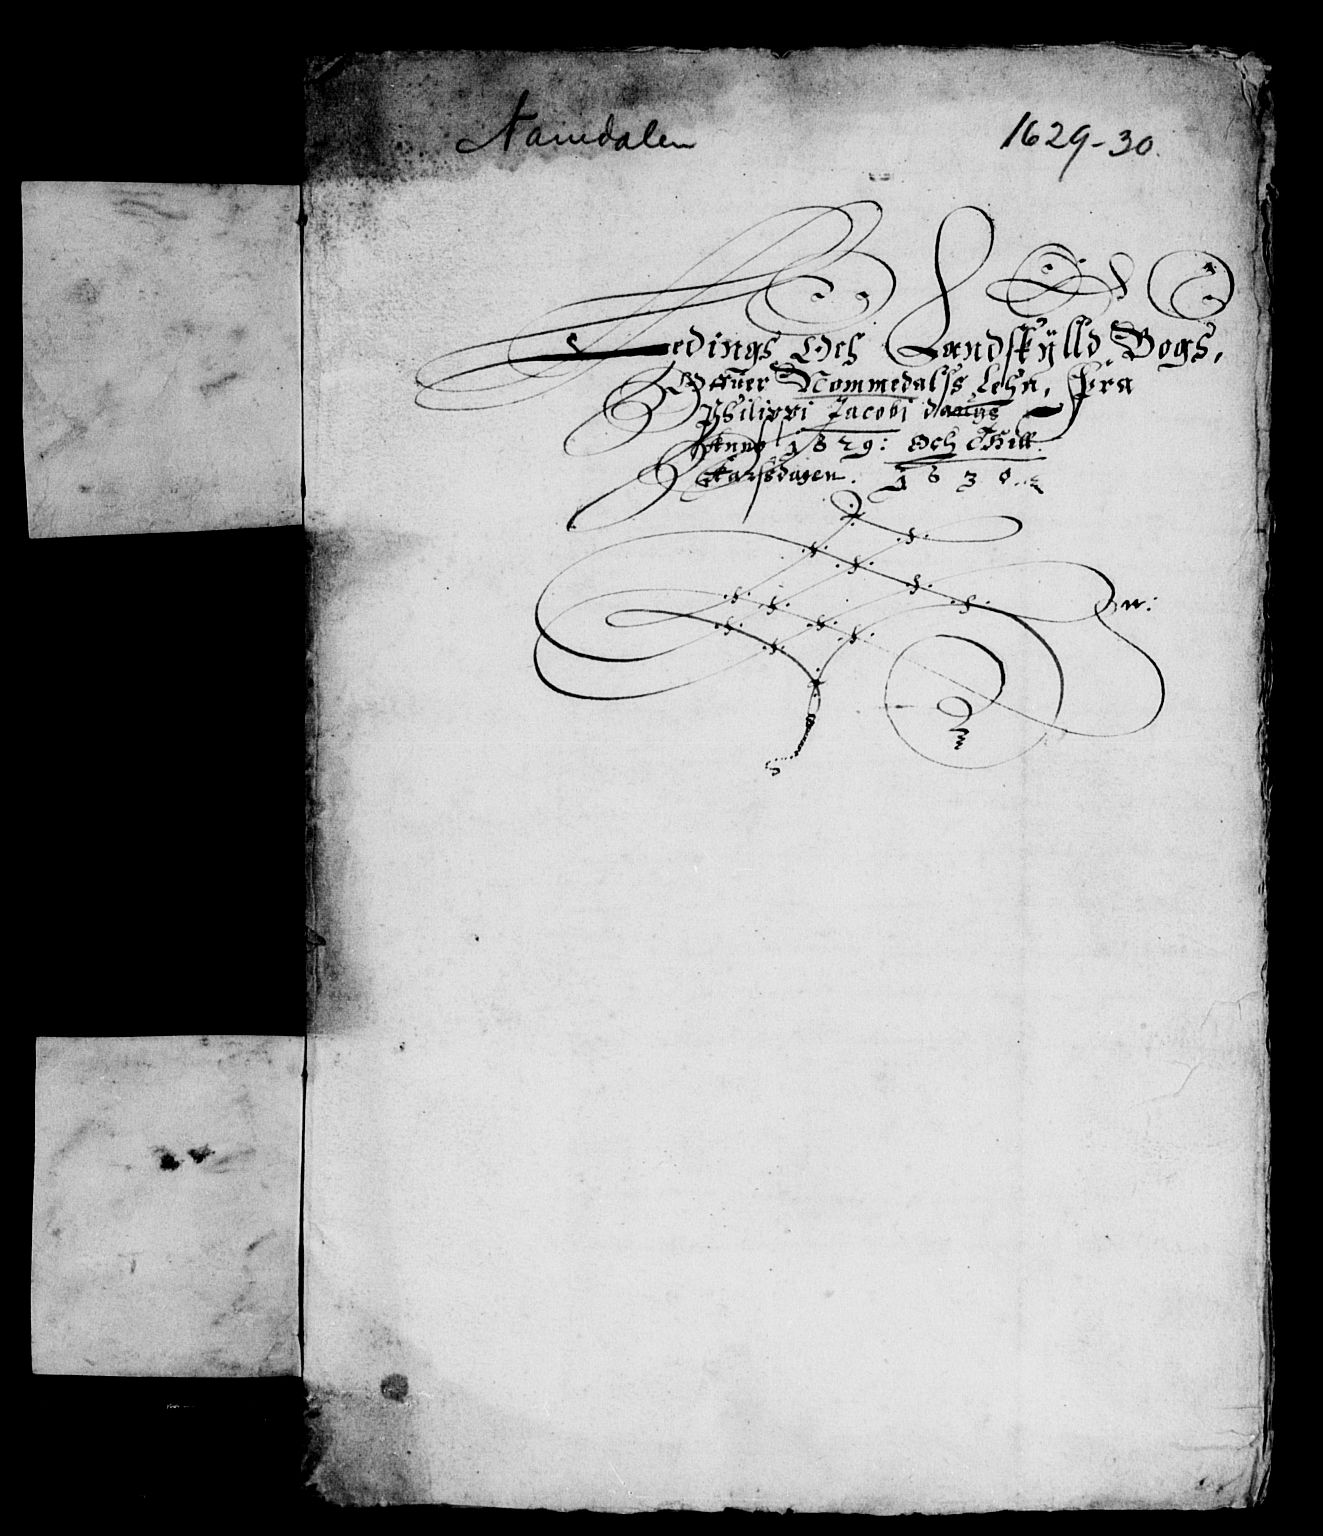 Namdalen 1629-30.
Ledings Och Landskÿlld Bogs,
Offuer Nommedalss Lehn, Fra
Philippi Jacobi daugs
Anno 1629: Och Till
Aarssdagen. 1630